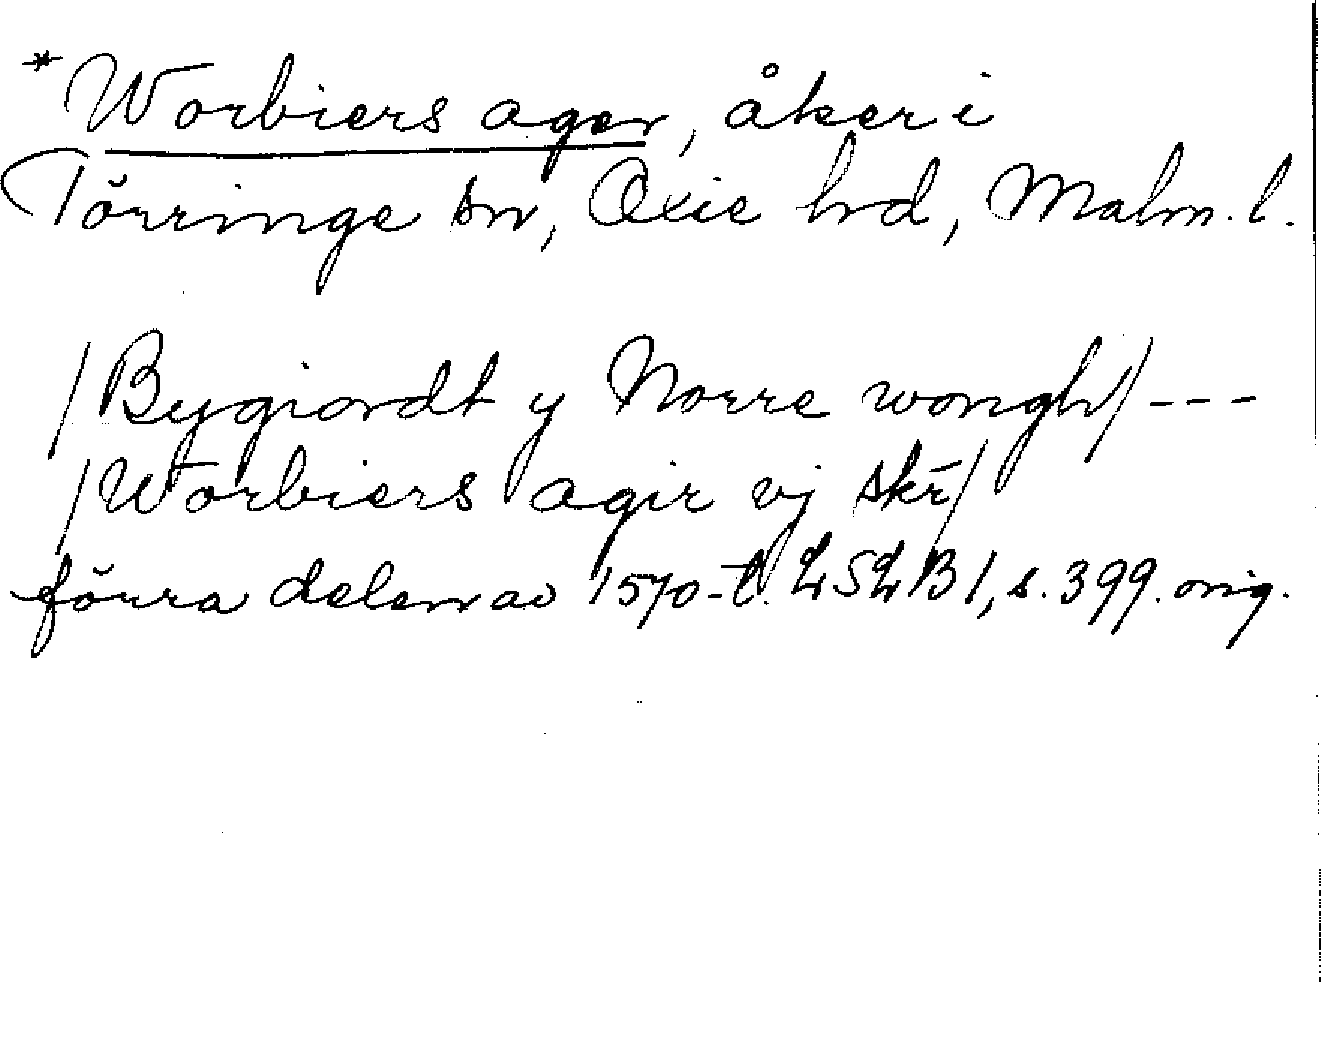 *Worbiers ager, åker i
Törringe sn, Oxie hrd, Malm. l.
/Bygiordt y Norre wongh/ ---
/Worbiers agir vj skr̄/
förra delen av 1570-t. LSLB 1, s. 399. orig.